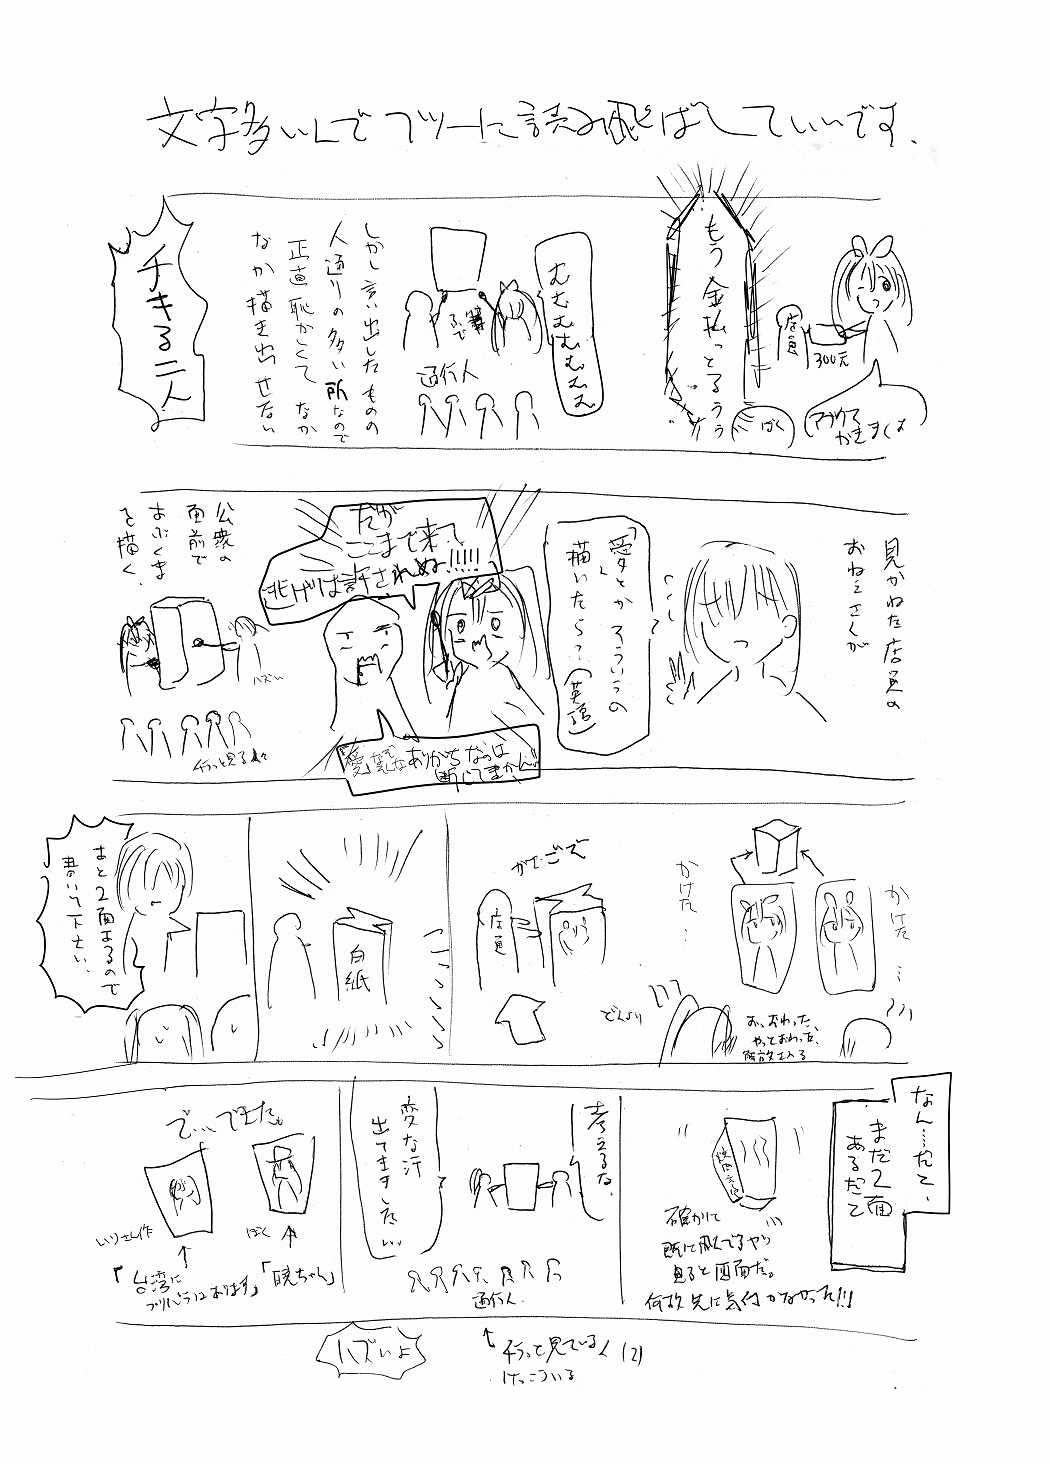 文字多いんでフツーに読み飛ばしていいです.
店員
300元
もう金払っとるうう
ぼく
むむむむむむむ
筆で
通行人
しかし言い出したものの
人通りの多い所なので
正直恥かしくてなか
なか描き出せない
チキる二人
見かねた店員の
おねえさんが
「愛」とかそういうの
描いたら?(英語)
だが
ここまで来て
逃げは許されぬ!!!!!
ありがちなのは
断じてまかん!!
公衆の
面前で
を描く.
ハズい
チラっと見る人々
かけた…
かけた…
お、おわった、
やっとおわった、
解放される
ガタゴズ
店員
どんより
白紙
あと2面あるので
書いて下さい.
なん……だと、
まだ2面
あるだと
確かに
見ると四面だ。
何故先に気付かなかった!!!
考えるな、
通行人
変な汗
出てきます元…
で…できた。
ぼく
「暁ちゃん」
いりさん作
「台湾に
ハズいよ
チラっと見ている人(2)
けっこういる